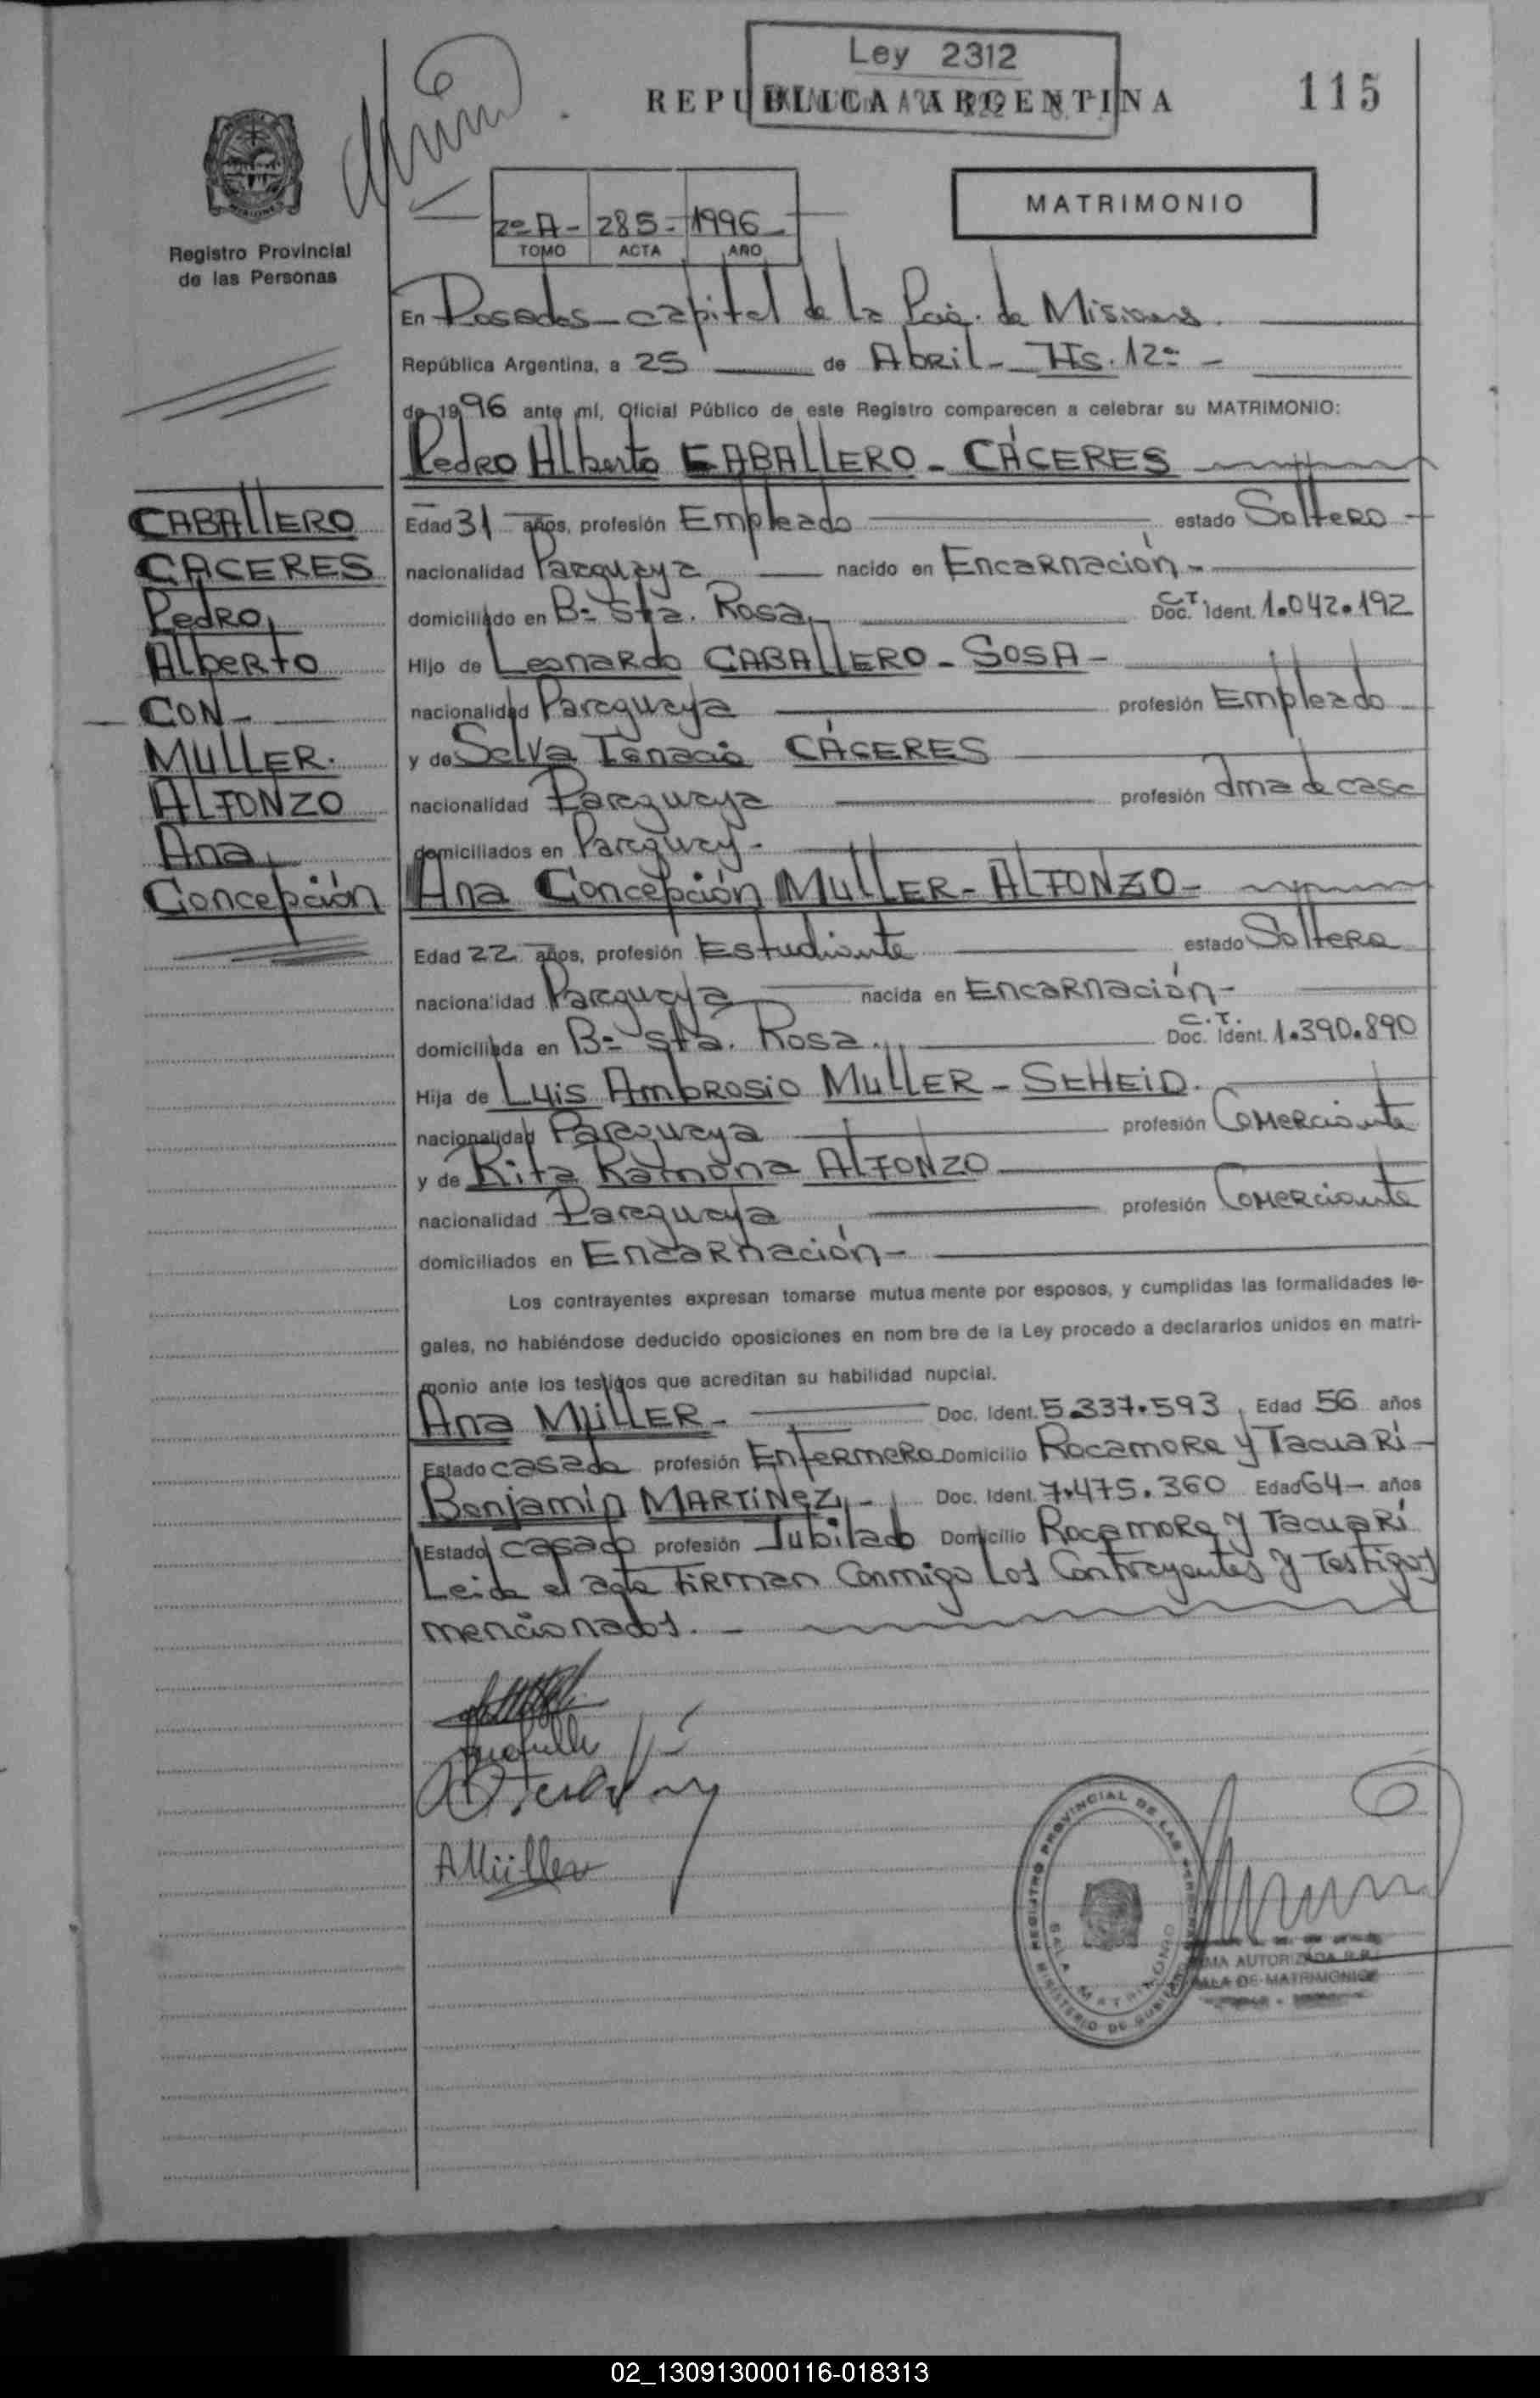 Ley 2312
REPUBLICA ARGENTINA
115
MATRIMONIO
2º A - 285 - 1996
TOMO ACTA AÑO
Registro Provincial
de las Personas
En Posadas - capital de la Pcia. de Misiones.
República Argentina, a 25 de Abril - Hs. 12=
de 1996 ante mí, Oficial Público de este Registro comparecen a celebrar su MATRIMONIO:
Pedro Alberto CABALLERO - CÁCERES
CABALLERO
CÁCERES
Pedro
Alberto
CON -
MULLER.
ALFONZO
Ana
Concepción
Edad 31 años, profesión Empleado estado Soltero
nacionalidad Paraguaya nacido en Encarnación -
domiciliado en Bº Sta. Rosa, C.I. Doc. Ident. 1.042.192
Hijo de Leonardo CABALLERO - SOSA -
nacionalidad Paraguaya profesión Empleado
y de Selva Ignacia CÁCERES
nacionalidad Paraguaya profesión ama de casa
domiciliados en Paraguay -
Ana Concepción MULLER - ALFONZO -
Edad 22 años, profesión Estudiante estado Soltera
nacionalidad Paraguaya nacida en Encarnación -
domiciliada en Bº Sta. Rosa. C.I. Doc. Ident. 1.390.890
Hija de Luis Ambrosio MULLER - SEHEID.
nacionalidad Paraguaya profesión Comerciante
y de Rita Ramona ALFONZO
nacionalidad Paraguaya profesión Comerciante
domiciliados en Encarnación -
Los contrayentes expresan tomarse mutua mente por esposos, y cumplidas las formalidades le-
gales, no habiéndose deducido oposiciones en nom bre de la Ley procedo a declararlos unidos en matri-
monio ante los testigos que acreditan su habilidad nupcial.
Ana MÜLLER - Doc. Ident. 5.337.593, Edad 56 años
Estado casada profesión Enfermera Domicilio Rocamora y Tacuarí -
Benjamín MARTÍNEZ, - Doc. Ident. 7.475.360 Edad 64 - años
Estado casado profesión Jubilado Domicilio Rocamora y Tacuarí
Leida el acta firman conmigo los contrayentes y testigos
mencionados. -
AMüller
REGISTRO PROVINCIAL DE LAS PERSONAS
SALA MATRIMONIO
MINISTERIO DE GOBIERNO
FIRMA AUTORIZADA R.P.
SALA DE MATRIMONIOS
02_130913000116-018313